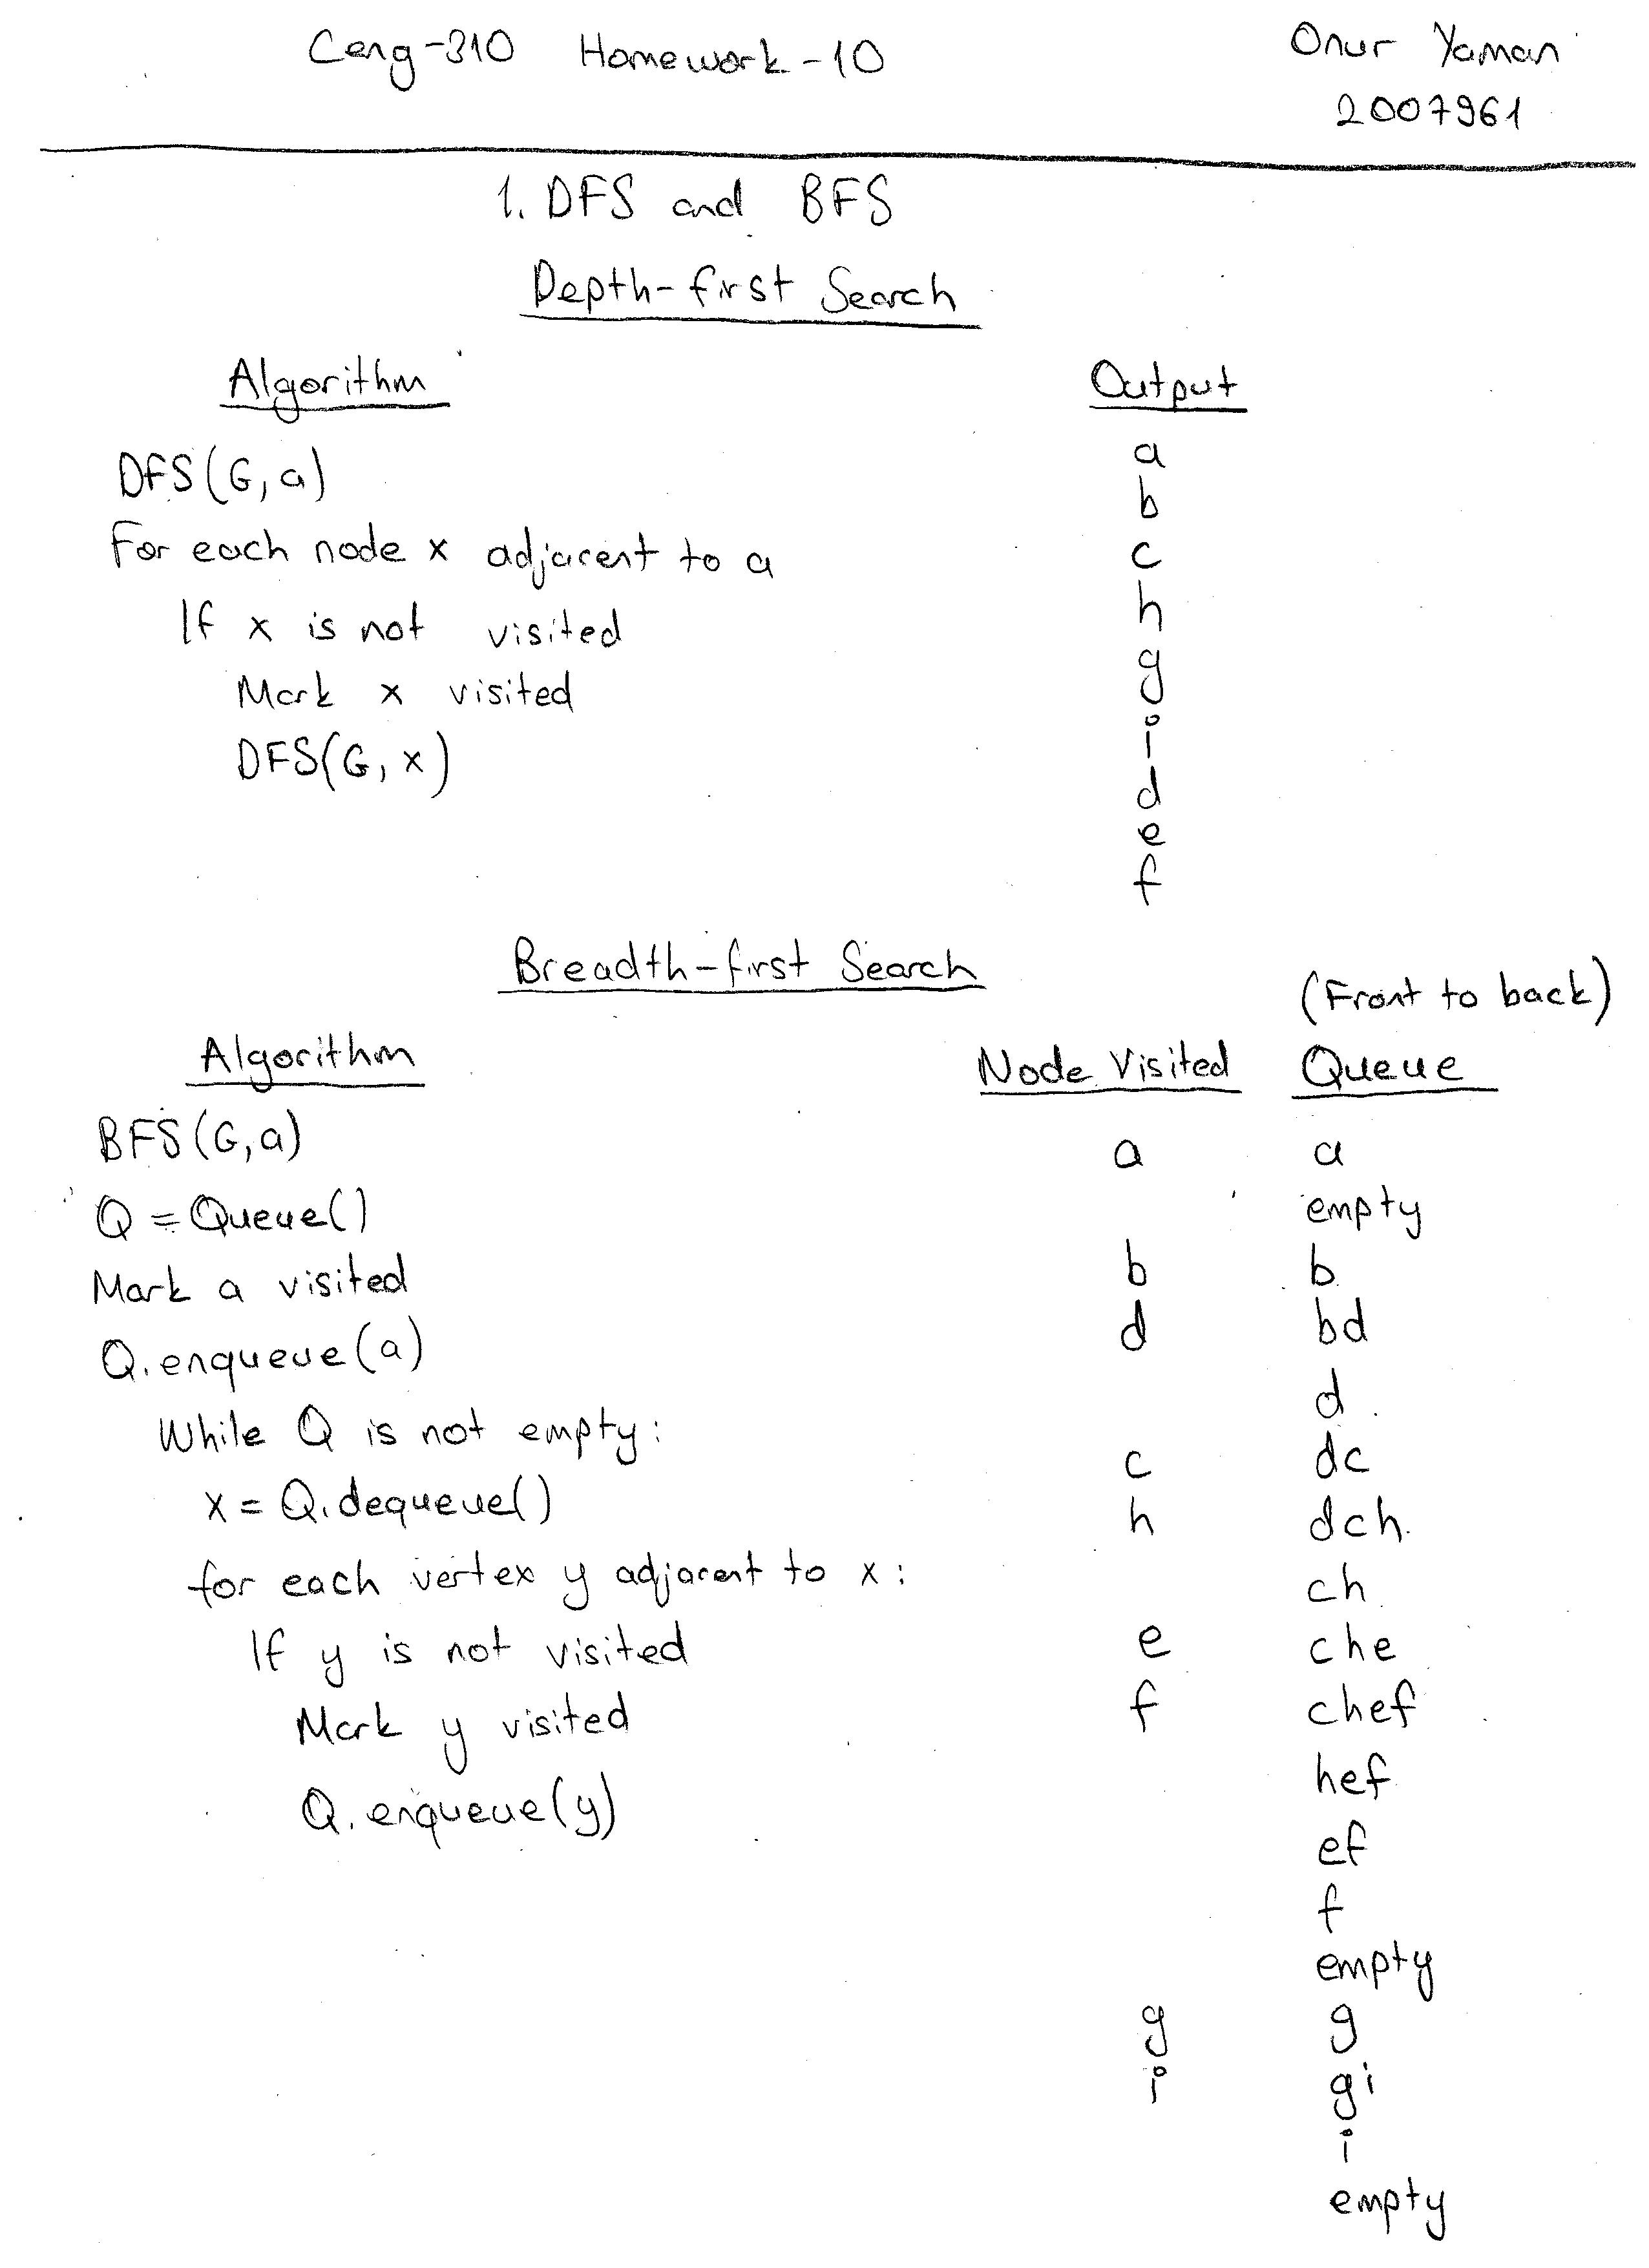 Ceng-310 Homework-10
Onur Yaman
2007961
1. DFS and BFS
Depth-first Search
Algorithm
DFS(G,a)
For each node x adjacent to a
If x is not visited
Mark x visited
DFS(G,x)
Output
a
b
c
h
g
i
d
e
f
Breadth-first Search
Algorithm
BFS(G,a)
Q = Queue()
Mark a visited
Q.enqueue(a)
While Q is not empty:
x = Q.dequeue()
for each vertex y adjacent to x:
If y is not visited
Mark y visited
Q.enqueue(y)
(Front to back)
Node Visited Queue
a a
empty
b b
d bd
d
c dc
h dch
ch
e che
f chef
hef
ef
f
empty
g g
i gi
i
empty